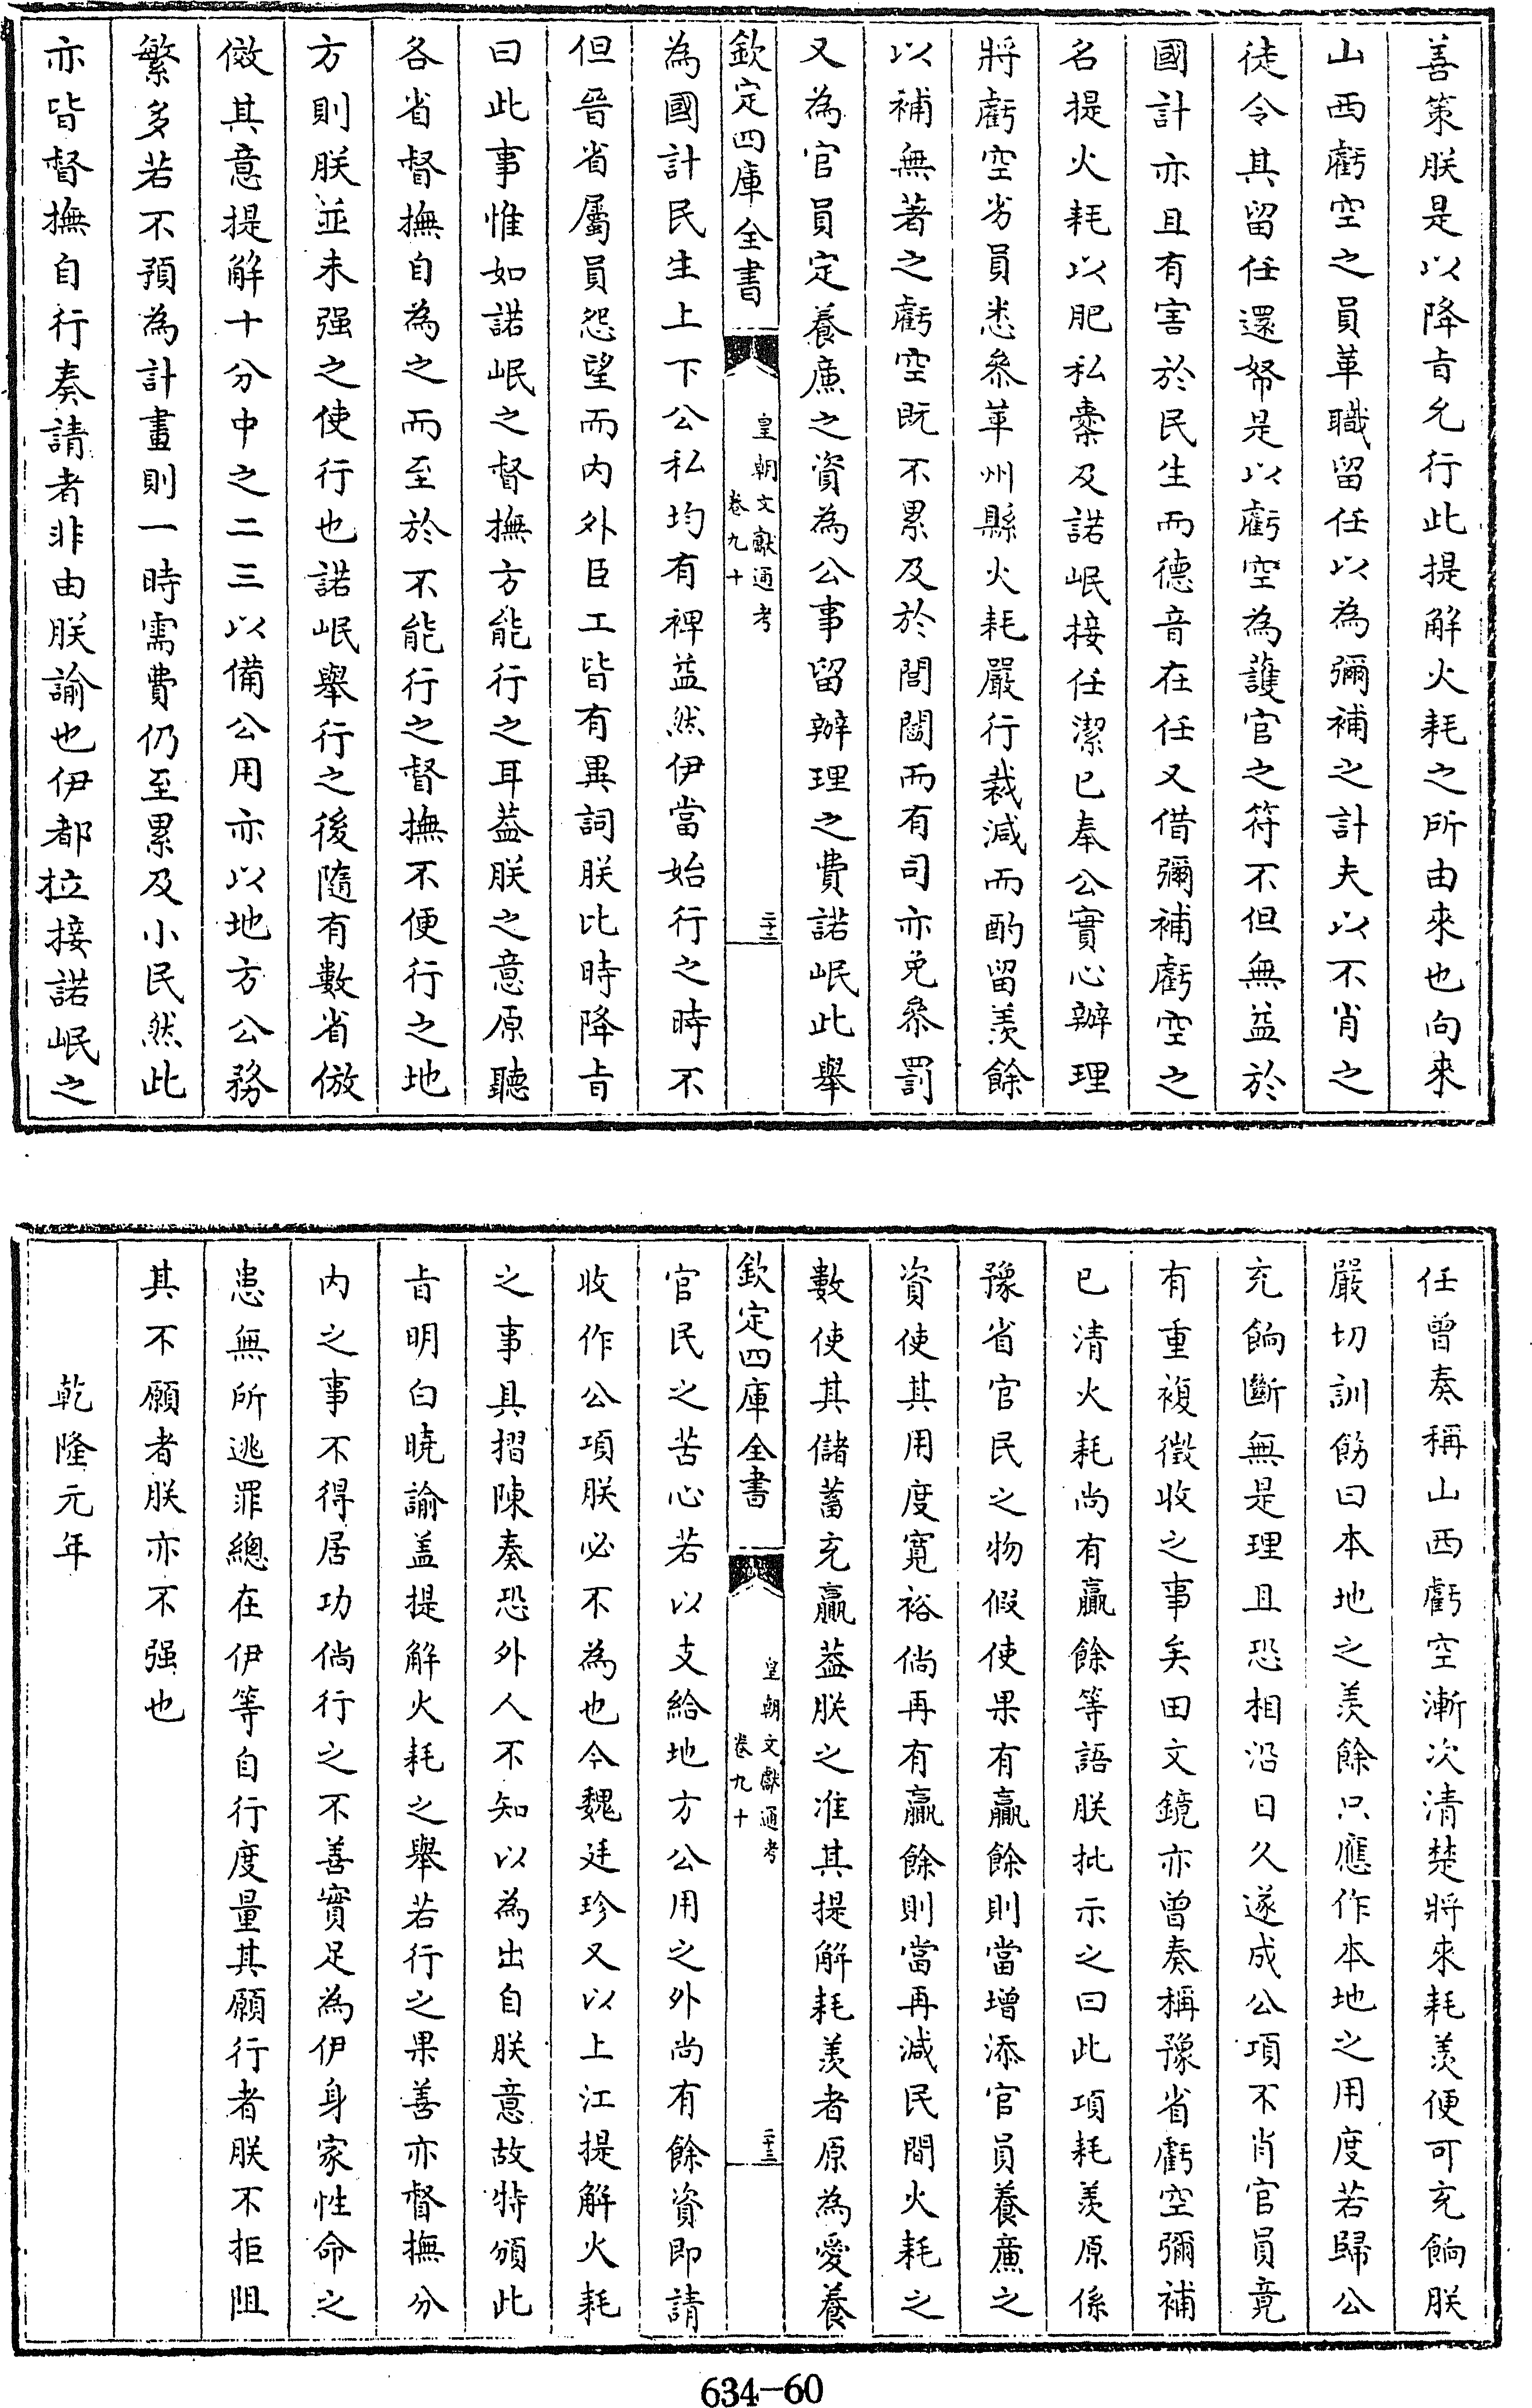 善策朕是以降㫖允行此提解火耗之所由來也向來
山西虧空之員革職留任以為彌補之計夫以不肖之
徒令其留任還帑是以虧空為護官之符不但無益於
國計亦且有害於民生而德音在任又借彌補虧空之
名提火耗以肥私槖及諾岷接任潔已奉公實心辦理
將虧空劣員悉叅革州縣火耗嚴行裁減而酌留羨餘
以補無著之虧空既不累及於閭閻而有司亦免叅罰
又為官員定養廉之資為公事留辦理之費諾岷此舉
欽定四庫全書
皇朝文獻通考
卷九十
二十二
為國計民生上下公私均有裨益然伊當始行之時不
但晉省屬員怨望而内外臣工皆有異詞朕比時降㫖
曰此事惟如諾岷之督撫方能行之耳葢朕之意原聽
各省督撫自為之而至於不能行之督撫不便行之地
方則朕並未强之使行也諾岷舉行之後隨有數省倣
傚其意提解十分中之二三以備公用亦以地方公務
繁多若不預為計畫則一時需費仍至累及小民然此
亦皆督撫自行奏請者非由朕諭也伊都拉接諾岷之
任曾奏稱山西虧空漸次清楚將來耗羨便可充餉朕
嚴切訓飭曰本地之羨餘只應作本地之用度若歸公
充餉斷無是理且恐相沿日久遂成公項不肖官員竟
有重複徵收之事矣田文鏡亦曾奏稱豫省虧空彌補
已清火耗尚有贏餘等語朕批示之曰此項耗羨原係
豫省官民之物假使果有贏餘則當增添官員養廉之
資使其用度寛裕倘再有贏餘則當再減民間火耗之
數使其儲蓄充贏葢朕之准其提解耗羨者原為愛養
欽定四庫全書
皇朝文獻通考
卷九十
二十三
官民之苦心若以支給地方公用之外尚有餘資即請
收作公項朕必不為也今魏廷珍又以上江提解火耗
之事具摺陳奏恐外人不知以為出自朕意故特頒此
㫖明白曉諭盖提解火耗之舉若行之果善亦督撫分
内之事不得居功倘行之不善實足為伊身家性命之
患無所逃罪總在伊等自行度量其願行者朕不拒阻
其不願者朕亦不强也
乾隆元年
634-60